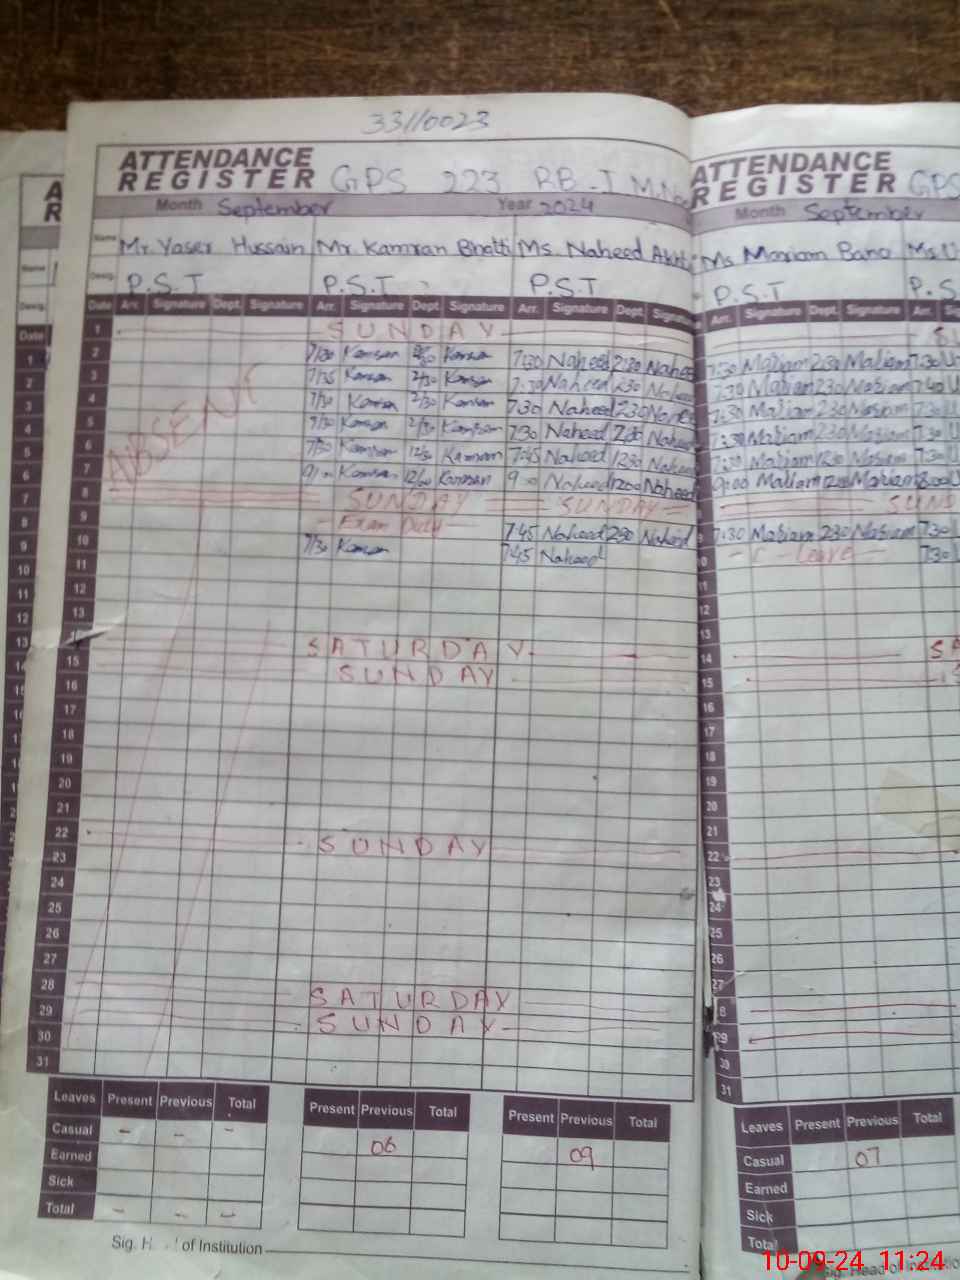 33110023
ATTENDANCE ATTENDANCE
REGISTER GPS 223 RB-I REGISTER GPS
Month September Year 2024 Month September
Name Mr. Yaser Hussain Mr Kamran Bhatti Ms. Naheed Ms Mariam Bano
Desig. P.S.T P.S.T P.S.T P.S.T P.S
Date Arr. Signature Dept. Signature Arr. Signature Dept. Signature Arr. Signature Dept. Arr. Signature Dept. Signature Arr.
1 SUNDAY
ABSENT
2 7/30 Kamran Kamran 7:30 Naheed 2:30 Naheed 7:30 Mariam 2:30 Mariam 7:30
3 7/35 Kamran 2/30 Kamran 7:30 Naheed 2:30 Naheed 7:30 Mariam 2:30 Mariam 7:40
4 7/30 Kamran 2/30 Kamran 7:30 Naheed 2:30 7:30 Mariam 2:30 Mariam 7:30
5 7/30 Kamran 2/30 Kamran 7:30 Naheed Naheed 7:30 Mariam 2:30 Mariam 7:30
6 7/30 Kamran 12/30 Kamran 7:45 Naheed 12:30 Naheed 7:30 Mariam 12:30 Mariam 7:30
7 Kamran 12/00 Kamran Naheed 12:00 Naheed 9:00 Mariam 12:00 Mariam 8:00
8 SUNDAY SUNDAY SUND
9 Exam Duty 7:45 Naheed 2:30 Naheed 7:30 Mariam 2:30 Mariam 7:30
10 7/30 Kamran 7:45 Naheed C-Leave 7:30
11
12
13
SATURDAY 14 SA
15 SUNDAY 15
16
17
18
19
20
21
22 SUNDAY 22
23
24
25
26
27
28 SATURDAY
29 SUNDAY
30
31
Leaves Present Previous Total Present Previous Total Present Previous Total Leaves Present Previous Total
Casual - - - 06 09 Casual 07
Earned Earned
Sick Sick
Total - - - Total
Sig. of Institution Sig. Head of
10-09-24 11:24